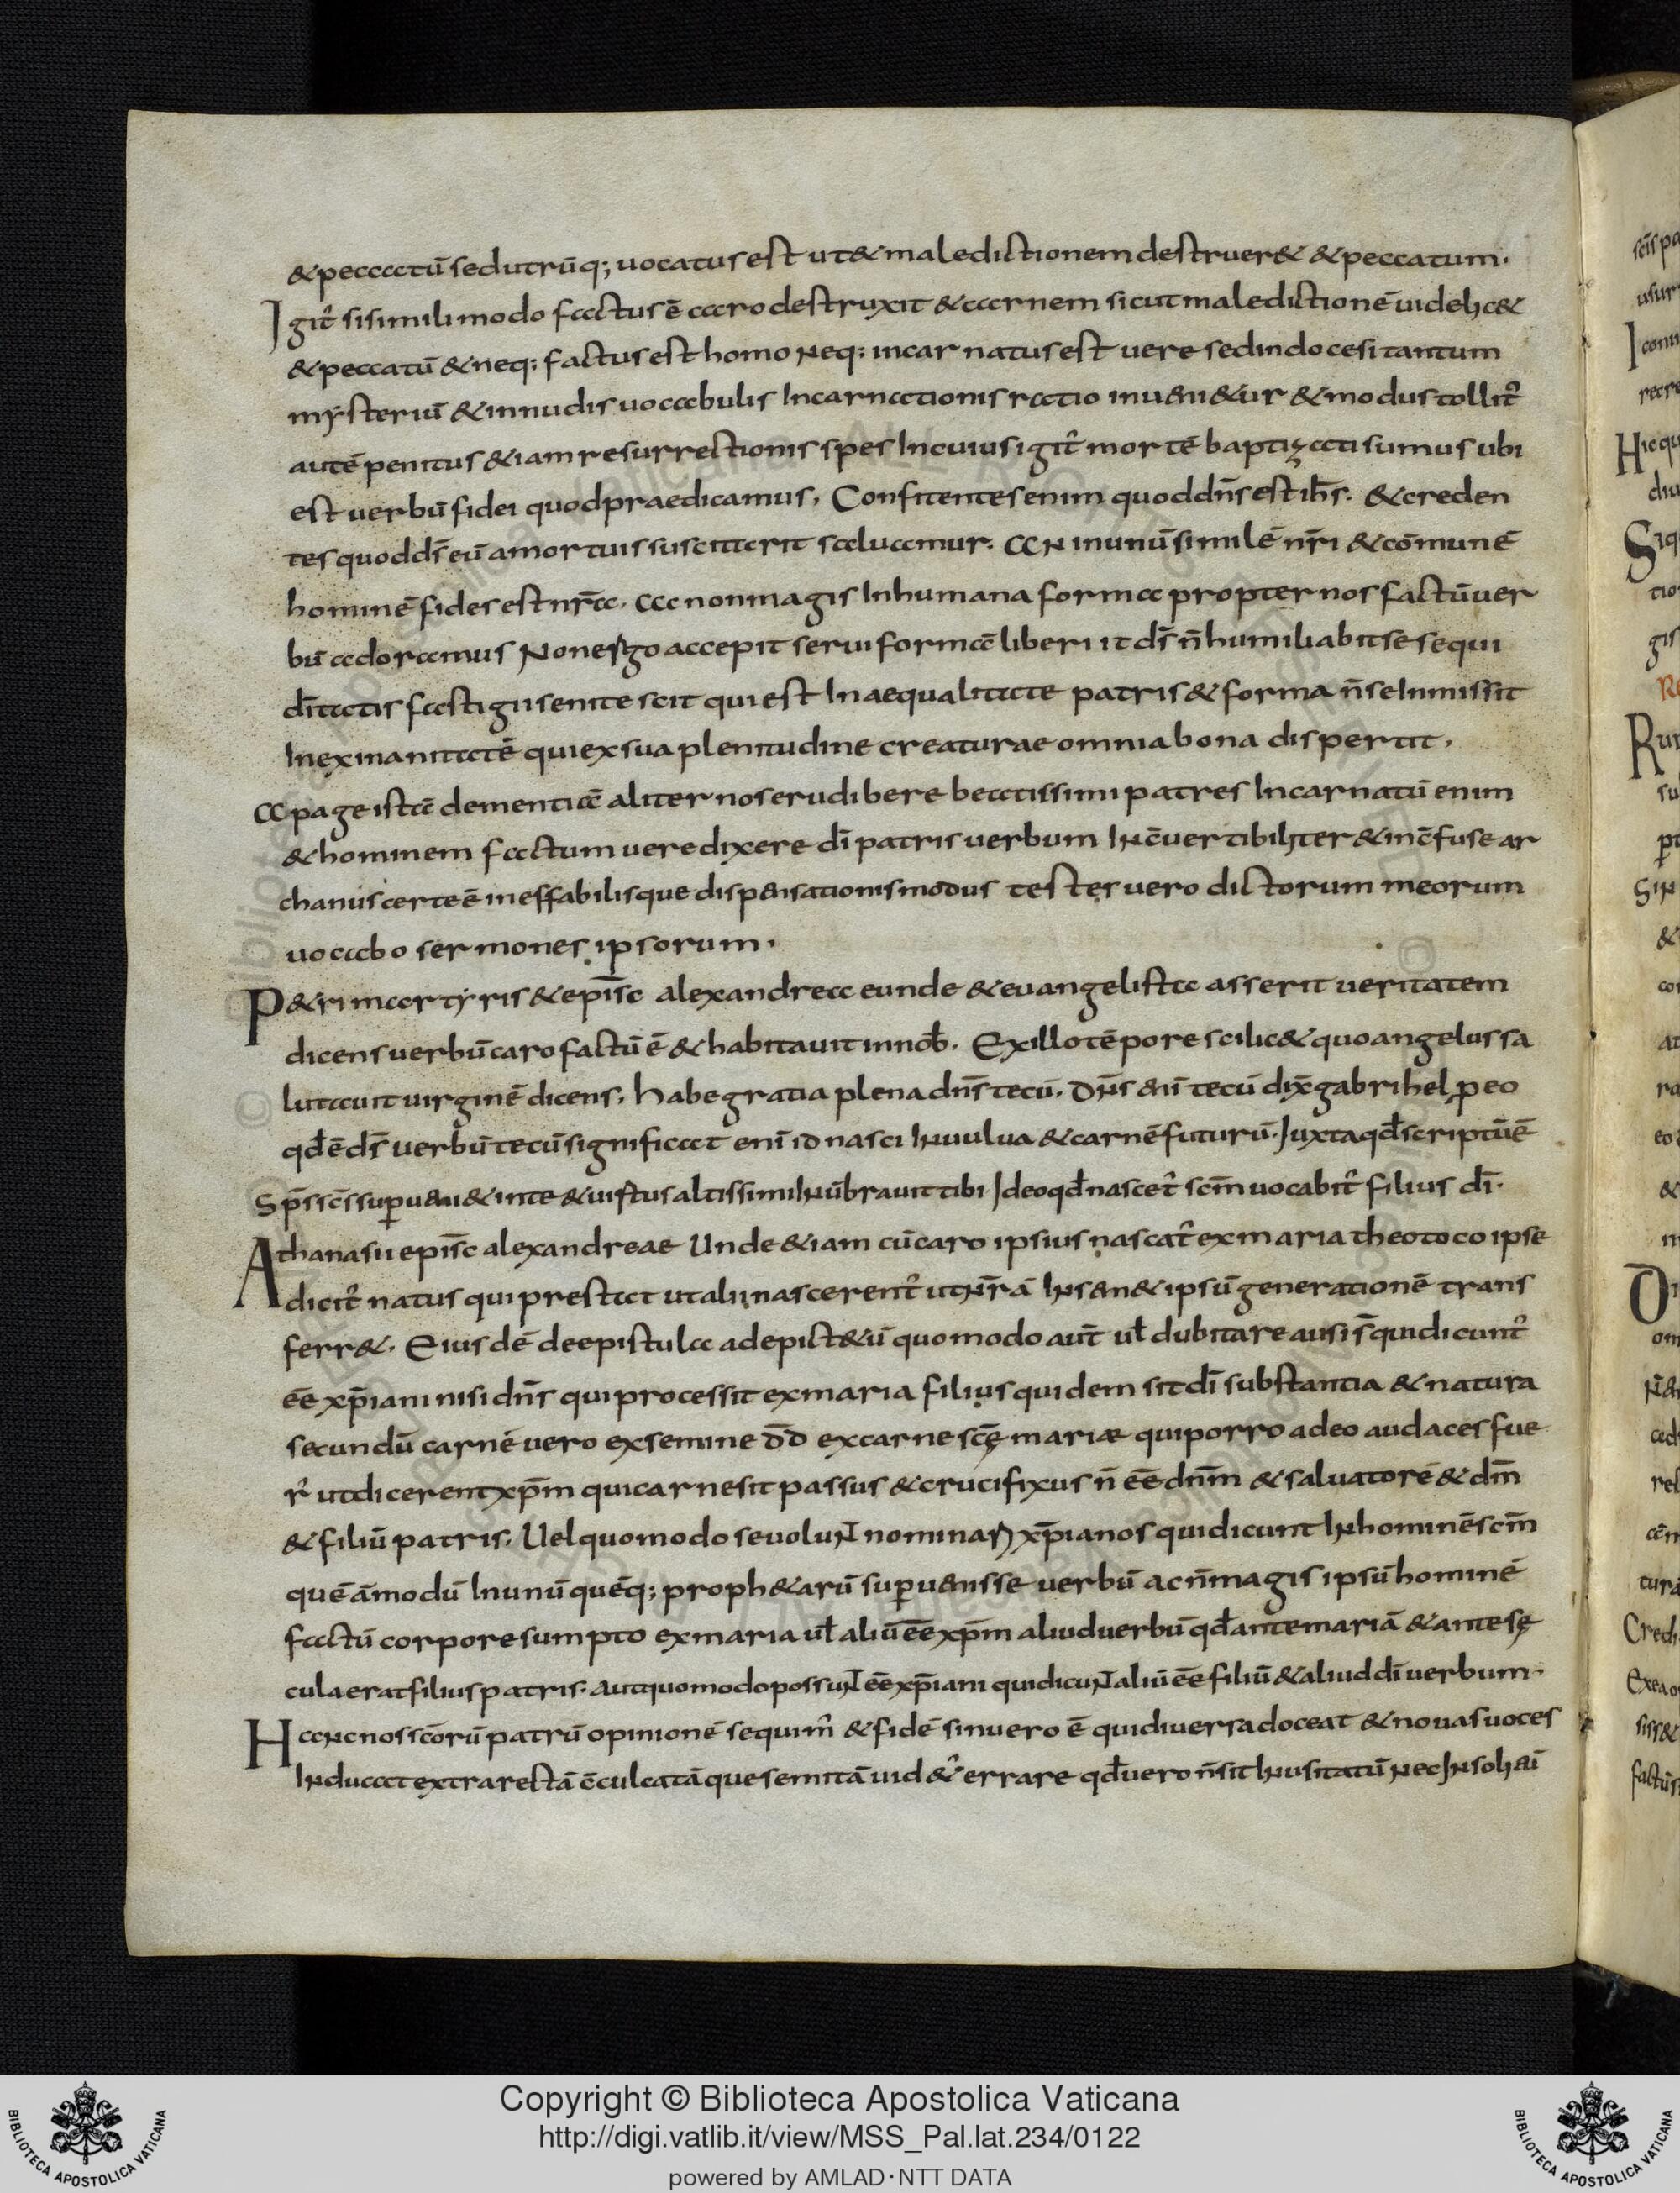 &peccatū sedutrūq; uocatus est ut&maledictionem destruer& &peccatum·
Igit̄ si simili modo factus ē caro destruxit &carnem sicut maledictionē uidelicet&
&peccatū &neq; factus est homo Neq; incarnatus est uere sed in doce si tantum
mysteriū &in nudis uocabulis Incarnationis ratio inueni&ur &modus tollit̄
autē penitus &iam resurrectionis spes In cuius igit̄ mortē baptizati sumus ubi
est uerbū fidei quod praedicamus, Confitentes enim quod dn̄s est ih̄s. &creden
tes quod ds̄ eū a mortuis suscitaterit saluamur. AN in unū similē nr̄i &cōmunē
hominē fides est nr̄a, ac non magis In humana forma propter nos factū uer
bū adoramus Non ergo accepit serui formā liberi it ds̄ n̄ humiliabit se se qui
dītatis fastigii se nitescit qui est In aequalitate patris &forma n̄ se Inmissit
In exinanitatē qui ex sua plenitudine creaturae omnia bona dispertit,
Apage istā dementiā aliter nos erudibere beatissimi patres Incarnatū enim
&hominem factum uere dixere dī patris uerbum Incuertibiliter &incfuse ar
chanus certe ē ineffabilisque dispensationis modus testes uero dictorum meorum
uocabo sermones ipsorum,
P&ri martyris &epīsc alexandreae unde &euangelista asserit ueritatem
dicens uerbū caro factū ē &habitauit in nob̄. Ex illo tēpore scilic& quo angelus sa
lutauit uirginē dicens, habe gratia plena dn̄s tecū, DN̄s enī tecū dix̄ gabrihel p̄ eo
qd̄ ē ds̄ uerbū tecū significat enī id nasci IN uulua &carnē futurū. Juxta qd̄ scriptū ē
Sp̄s sc̄s sup̄ueni& in te &uirtus altissimi INūbrauit tibi Ideo qd̄ nascet̄ sc̄m uocabit̄ filius dī.
Athanasii epīsc alexandreae Unde &iam cū caro ipsius nascat̄ ex maria theotoco ipse
dicit̄ natus qui prestat ut alii nascerent̄ ut Nr̄ā IN sen& ipsū generationē trans
ferr&. Eiusdē de epistula ad epict&ū quomodo aut̄ ul̄ dubitare ausi s̄ qui dicunt̄
ēē xp̄iani nisi dn̄s qui processit ex maria filius quidem sit dī substantia &natura
secundū carnē uero ex semine dd̄ ex carne sc̄ę mariæ qui porro adeo audaces fue
r̄ ut dicerent xp̄m qui carne sit passus &crucifixus n̄ ēē dn̄m &saluatorē &dm̄
&filiū patris, Uel quomodo se uoluNT nominaR xp̄ianos qui dicunt IN hominē sc̄m
quēāmodū In unū quēq; proph&arū sup̄uenisse uerbū ac n̄ magis ipsū hominē
factū corpore sumpto ex maria ul̄ aliū ēē xp̄m aliud uerbū qd̄ ante mariā &ante sę
cula erat filius patris. aut quomodo possuNT ēē xp̄iani qui dicuNT aliū ēē filiū &aliud dī uerbum.
HaNc nos sc̄orū patrū opinionē sequim̄ &fidē sin uero ē qui diuersa doceat &nouas uoces
INducat extra rectā c̄culcatāque semitā uid&̄ errare qd̄ uero n̄ sit INusitatū Nec IN soli enī
Copyright © Biblioteca Apostolica Vaticana
http://digi.vatlib.it/view/MSS_Pal.lat.234/0122
powered by AMLAD·NTT DATA
BIBLIOTECA APOSTOLICA VATICANA
BIBLIOTECA APOSTOLICA VATICANA